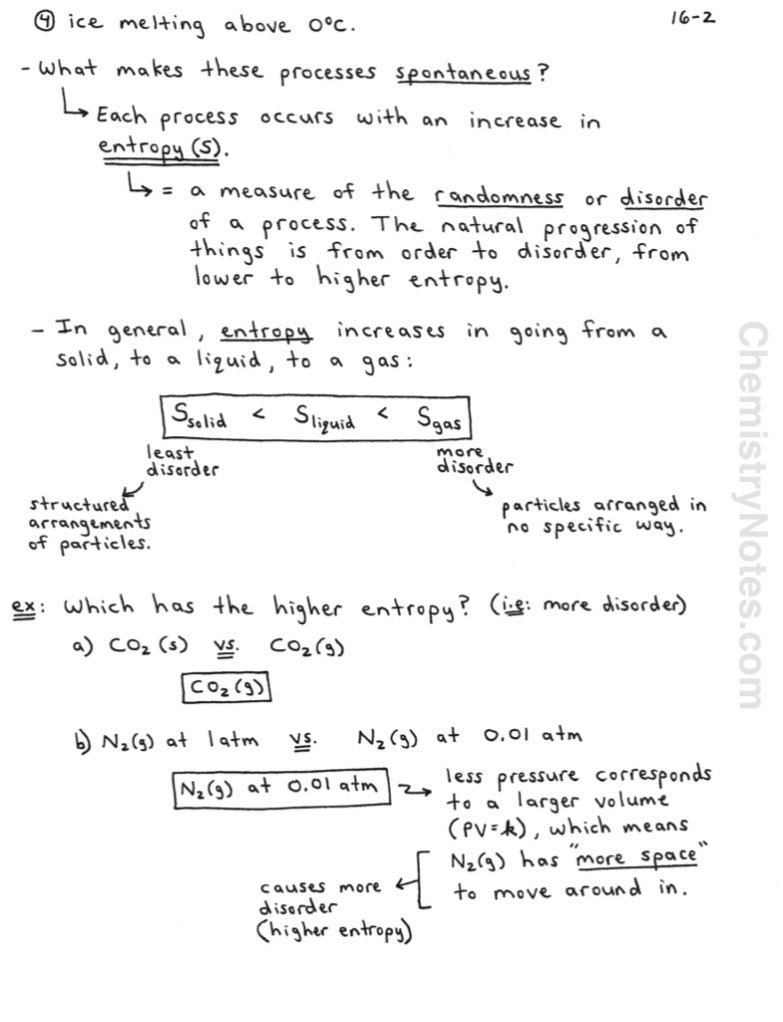 ④ ice melting above 0°C.
16-2
- What makes these processes spontaneous?
↳ Each process occurs with an increase in
entropy (S).
↳ = a measure of the randomness or disorder
of a process. The natural progression of
things is from order to disorder, from
lower to higher entropy.
- In general, entropy increases in going from a
solid, to a liquid, to a gas:
Ssolid < Sliquid < Sgas
least
disorder
more
disorder
structured
arrangements
of particles.
particles arranged in
no specific way.
ex: Which has the higher entropy? (i.e: more disorder)
a) CO₂ (s) vs. CO₂(g)
CO₂(g)
b) N₂(g) at 1atm vs. N₂(g) at 0.01 atm
N₂(g) at 0.01 atm → less pressure corresponds
to a larger volume
(PV=k), which means
N₂(g) has "more space"
to move around in.
causes more
disorder
(higher entropy)
ChemistryNotes.com